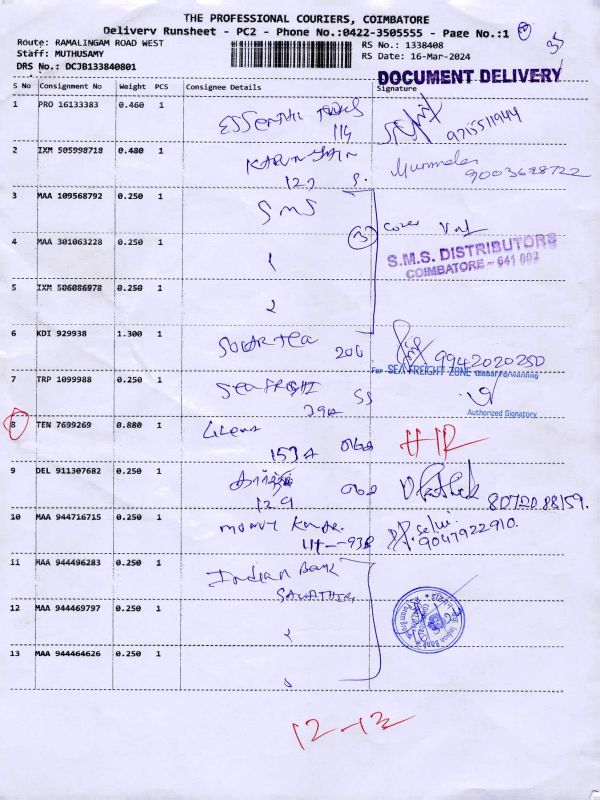 THE PROFESSIONAL COURIERS, COIMBATORE
Delivery Runsheet - PC2 - Phone No.:0422-3505555 - Page No.:1
35
Route: RAMALINGAM ROAD WEST
RS No.: 1338408
Staff: MUTHUSAMY
RS Date: 16-Mar-2024
DRS No.: DCJB133840801
DOCUMENT DELIVERY
S No Consignment No Weight PCS Consignee Details Signature
1 PRO 16133383 0.460 1
114
9715511944
2 IXM 505998718 0.480 1
9003698722
3 MAA 109568792 0.250 1 SMS
3 cover
S.M.S. DISTRIBUTORS
COIMBATORE - 641 002
4 MAA 301063228 0.250 1 1
5 IXM 506086978 0.250 1 2
6 KDI 929938 1.300 1
206 9942020250
For SEA FREIGHT ZONE Global Forwarding
7 TRP 1099988 0.250 1 SEA FREIGHT
39A SS
Authorised Signatory
8 TEN 7699269 0.880 1
153A
9 DEL 911307682 0.250 1
129
8072088159.
10 MAA 944716715 0.250 1
Selvi
9047922910.
11 MAA 944496283 0.250 1 Indian Bank
12 MAA 944469797 0.250 1 2
13 MAA 944464626 0.250 1
12-12